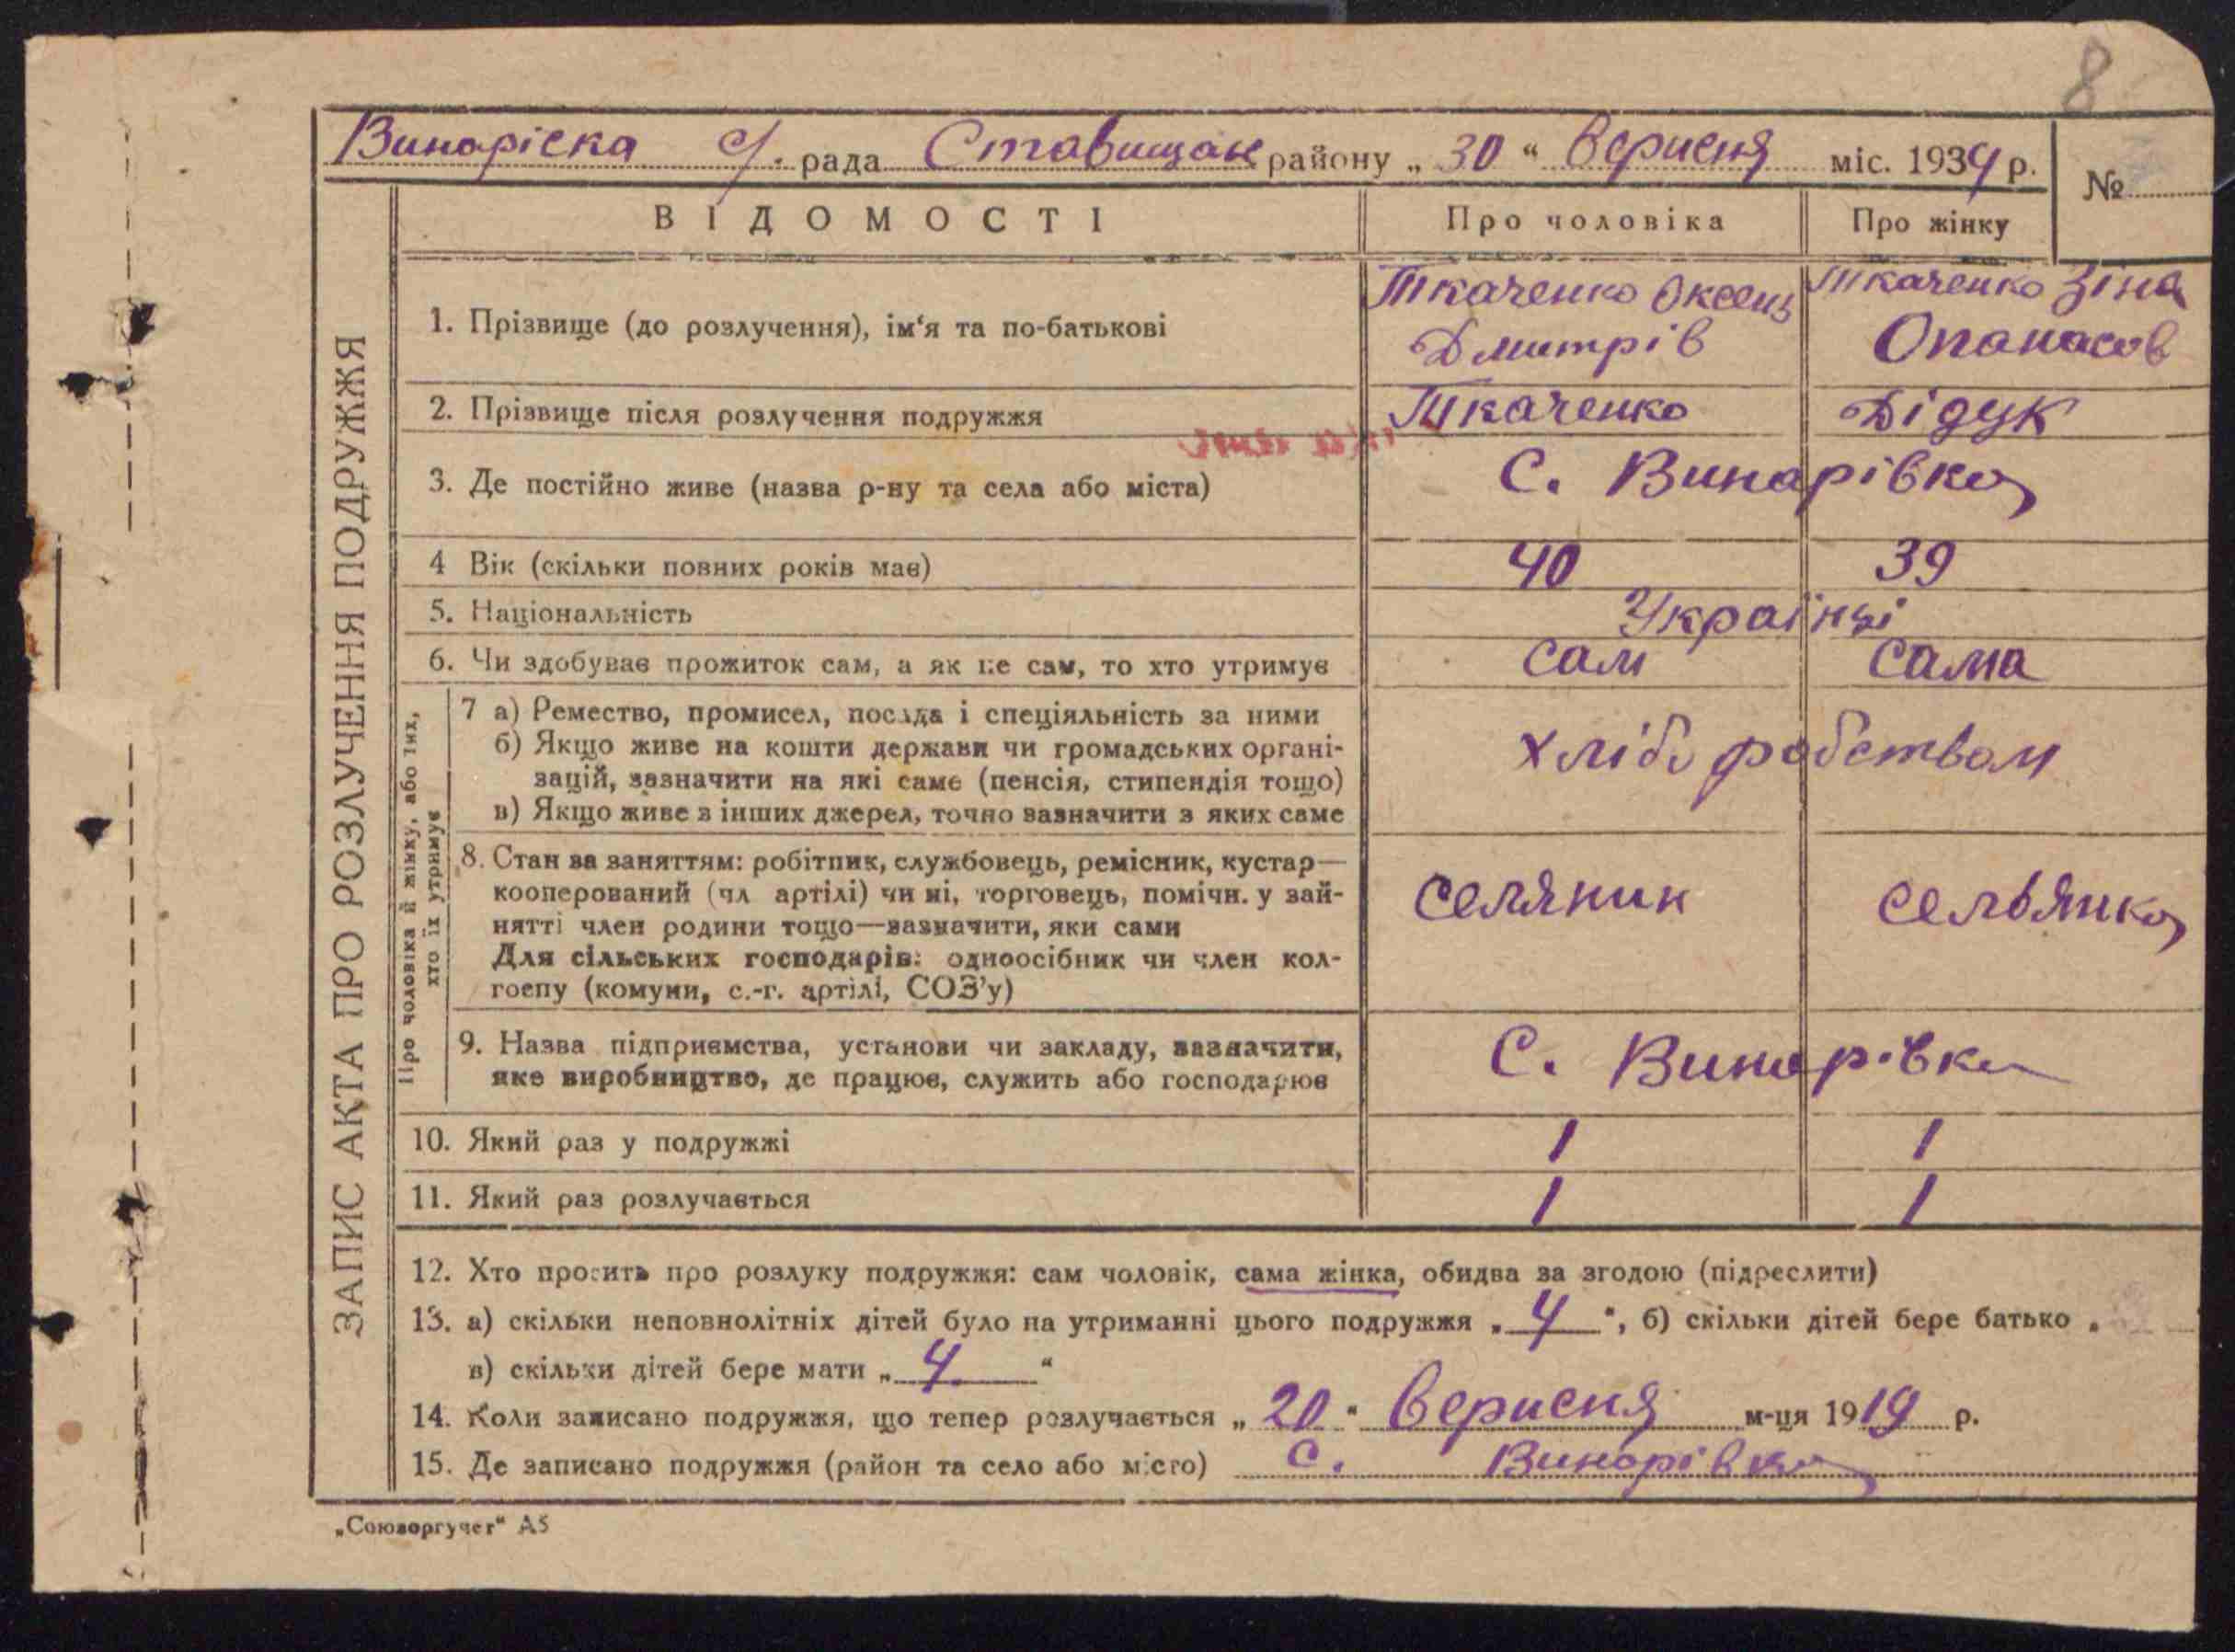 8
Винаріска с/. рада Ставищан району „ 30 “ Вересня міс. 1934 р. №
ВІДОМОСТІ Про чоловіка Про жінку
ЗАПИС АКТА ПРО РОЗЛУЧЕННЯ ПОДРУЖЖЯ
Ткаченко Оксень Ткаченко Зіна
1. Прізвище (до розлучення), ім‘я та по-батькові Дмитрів Опанасов
2. Прізвище після розлучення подружжя Ткаченко Дідук
3. Де постійно живе (назва р-ну та села або міста) С. Винарівка
4 Вік (скільки повних років має) 40 39
5. Національність Українці
6. Чи здобуває прожиток сам, а як не сам, то хто утримує сам сама
Про чоловіка й жінку, або тих,
хто їх утримує
7 а) Ремество, промисел, посада і спеціяльність за ними
б) Якщо живе на кошти держави чи громадських органі-
зацій, зазначити на які саме (пенсія, стипендія тощо)
в) Якщо живе з інших джерел, точно зазначити з яких саме
хлібо робством
8. Стан за заняттям: робітник, службовець, ремісник, кустар—
кооперований (чл артілі) чи ні, торговець, помічн. у зай-
нятті член родини тощо—зазначити, яки сами
Для сільських господарів: одноосібник чи член кол-
госпу (комуни, с.-г. артілі, СОЗ’у)
селянин сельянка
9. Назва підприємства, установи чи закладу, зазначити,
яке виробництво, де працює, служить або господарює
С. Винарівка
10. Який раз у подружжі 1 1
11. Який раз розлучається 1 1
12. Хто просить про розлуку подружжя: сам чоловік, сама жінка, обидва за згодою (підреслити)
13. а) скільки неповнолітніх дітей було на утриманні цього подружжя „ 4 “, б) скільки дітей бере батько „
в) скільки дітей бере мати „ 4 “
14. Коли записано подружжя, що тепер розлучається „ 20 “ Вересня м-ця 1919 р.
15. Де записано подружжя (район та село або місто) С. Винарівка
„Союзоргучет“ А5